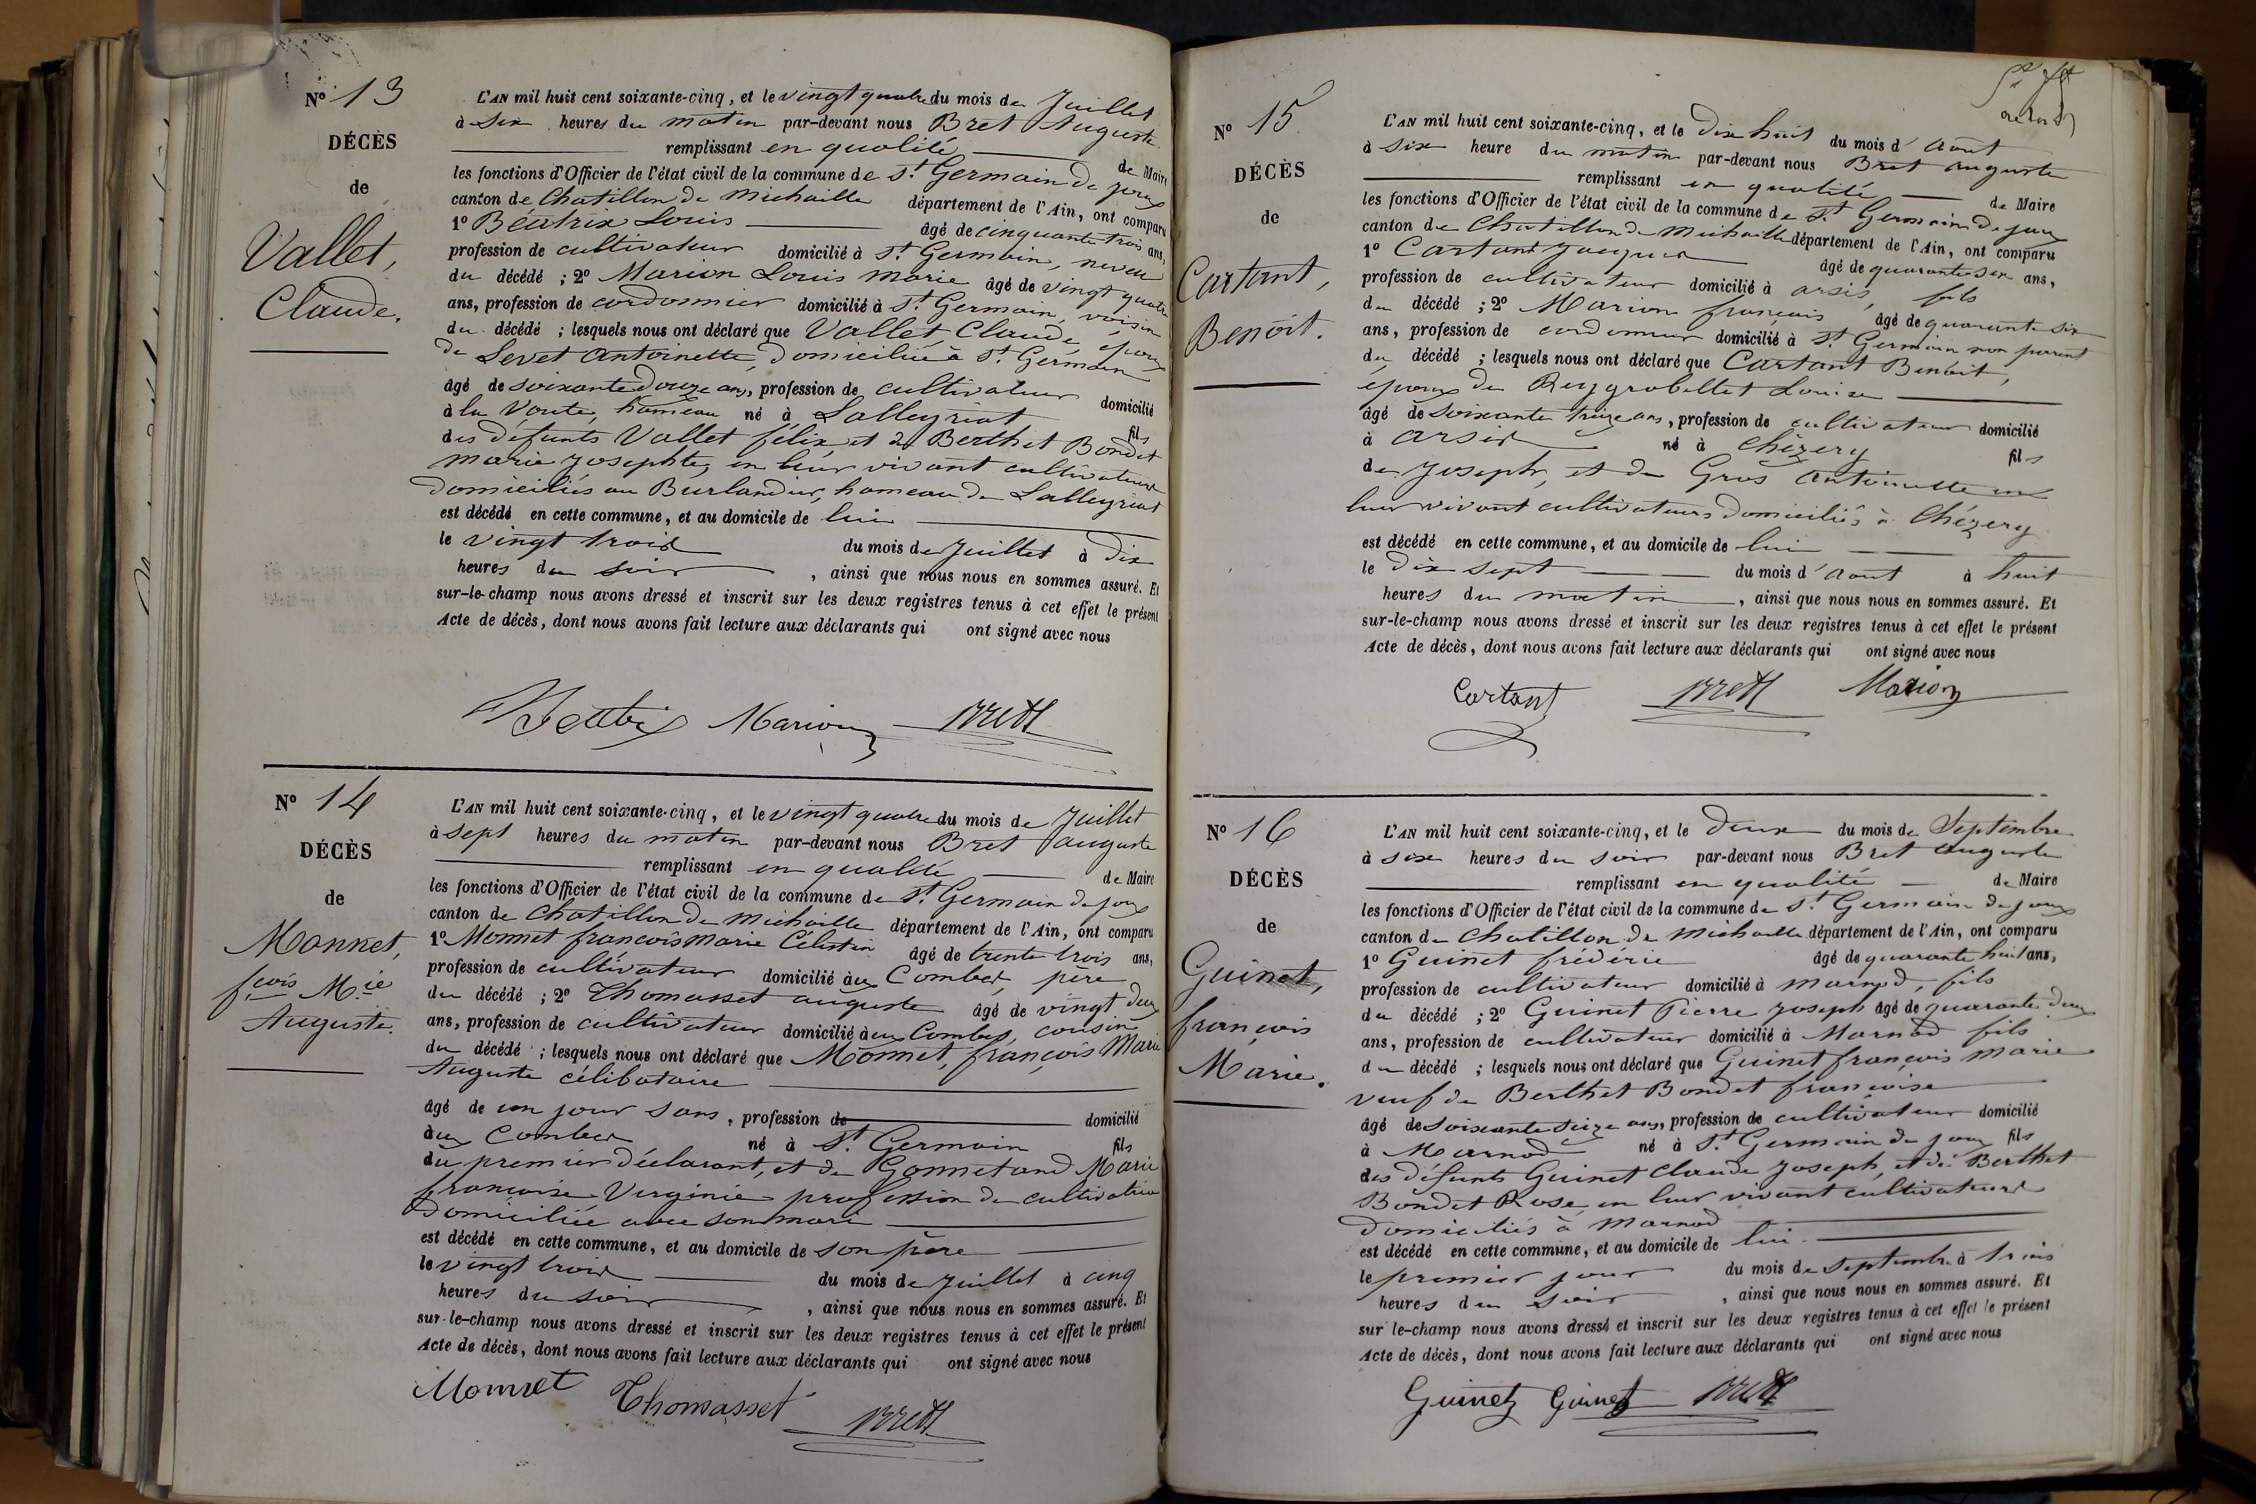 N° 13
DÉCÈS
de
Vallet,
Claude.
L'AN mil huit cent soixante-cinq, et le vingt quatre du mois de Juillet
à six heures du matin par-devant nous Bret Auguste
remplissant en qualité de Maire
les fonctions d'Officier de l'état civil de la commune de St. Germain de joux
canton de Chatillon de Michaille département de l'Ain, ont comparu
1° Béatrix Louis âgé de cinquante trois ans,
profession de cultivateur domicilié à St. Germain, neveu
du décédé ; 2° Marion Louis Marie âgé de vingt quatre
ans, profession de cordonnier domicilié à St. Germain, voisin
du décédé ; lesquels nous ont déclaré que Vallet, Claude, époux
de Levet Antoinette, domiciliée à St. Germain
âgé de soixante douze ans, profession de cultivateur domicilié
à la Voute, hameau né à Lalleyriat fils
des défunts Vallet félix et de Berthet Bondet
Marie Josephte, en leur vivant cultivateurs
domiciliés au Burlandier, hameau de Lalleyriat
est décédé en cette commune, et au domicile de lui
le vingt trois du mois de Juillet à dix
heures du soir , ainsi que nous nous en sommes assuré. Et
sur-le-champ nous avons dressé et inscrit sur les deux registres tenus à cet effet le présent
Acte de décès, dont nous avons fait lecture aux déclarants qui ont signé avec nous
Béatrix Marion Brett
N° 14
DÉCÈS
de
Monnet,
fçois Mie
Auguste.
L'AN mil huit cent soixante-cinq, et le vingt quatre du mois de Juillet
à sept heures du matin par-devant nous Bret Auguste
remplissant en qualité de Maire
les fonctions d'Officier de l'état civil de la commune de St. Germain de joux
canton de Chatillon de Michaille département de l'Ain, ont comparu
1° Monnet françois marie Célestin âgé de trente trois ans,
profession de cultivateur domicilié aux Combes, père
du décédé ; 2° Thomasset auguste âgé de vingt deux
ans, profession de cultivateur domicilié aux Combes, cousin
du décédé ; lesquels nous ont déclaré que Monnet, françois Marie
Auguste célibataire
âgé de un jour sans, profession de domicilié
aux Combes né à St. Germain fils
du premier déclarant, et de Gonnetand Marie
françoise Virginie profession de cultivatrice
domiciliée avec son mari
est décédé en cette commune, et au domicile de son père
le vingt trois du mois de Juillet à cinq
heures du soir , ainsi que nous nous en sommes assuré. Et
sur-le-champ nous avons dressé et inscrit sur les deux registres tenus à cet effet le présent
Acte de décès, dont nous avons fait lecture aux déclarants qui ont signé avec nous
Monnet Thomasset Brett
N° 15
DÉCÈS
de
Cartant,
Benoit.
L'AN mil huit cent soixante-cinq, et le dix huit du mois d'Aout
à six heure du matin par-devant nous Bret auguste
remplissant en qualité de Maire
les fonctions d'Officier de l'état civil de la commune de St. Germain de joux
canton de Chatillon de Michaille département de l'Ain, ont comparu
1° Cartant Jacques âgé de quarante six ans,
profession de cultivateur domicilié à arsis, fils
du décédé ; 2° Marion françois âgé de quarante six
ans, profession de cordonnier domicilié à St. Germain non parent
du décédé ; lesquels nous ont déclaré que Cartant Benoit,
époux de Reygrobellet Louise
âgé de soixante treize ans, profession de cultivateur domicilié
à arsis né à Chézery fils
de Joseph, et de Gros Antoinette en
leur vivant cultivateurs domiciliés à Chézery
est décédé en cette commune, et au domicile de lui
le dix sept du mois d'aout à huit
heures du matin , ainsi que nous nous en sommes assuré. Et
sur-le-champ nous avons dressé et inscrit sur les deux registres tenus à cet effet le présent
Acte de décès, dont nous avons fait lecture aux déclarants qui ont signé avec nous
Cartant Brett Marion
N° 16
DÉCÈS
de
Guinet,
françois
Marie.
L'AN mil huit cent soixante-cinq, et le deux du mois de Septembre
à six heures du soir par-devant nous Bret auguste
remplissant en qualité de Maire
les fonctions d'Officier de l'état civil de la commune de St. Germain de joux
canton de Chatillon de Michaille département de l'Ain, ont comparu
1° Guinet frédéric âgé de quarante huit ans,
profession de cultivateur domicilié à marnod, fils
du décédé ; 2° Guinet Pierre Joseph âgé de quarante deux
ans, profession de cultivateur domicilié à Marnod fils
du décédé ; lesquels nous ont déclaré que Guinet françois Marie
veuf de Berthet Bondet françoise
âgé de soixante seize ans, profession de cultivateur domicilié
à Marnod né à St. Germain de joux fils
des défunts Guinet Claude Joseph, et de Berthet
Bondet Rose, en leur vivant cultivateurs
domiciliés à Marnod
est décédé en cette commune, et au domicile de lui
le premier jour du mois de septembre à trois
heures du soir , ainsi que nous nous en sommes assuré. Et
sur le-champ nous avons dressé et inscrit sur les deux registres tenus à cet effet le présent
Acte de décès, dont nous avons fait lecture aux déclarants qui ont signé avec nous
Guinet Guinet Brett